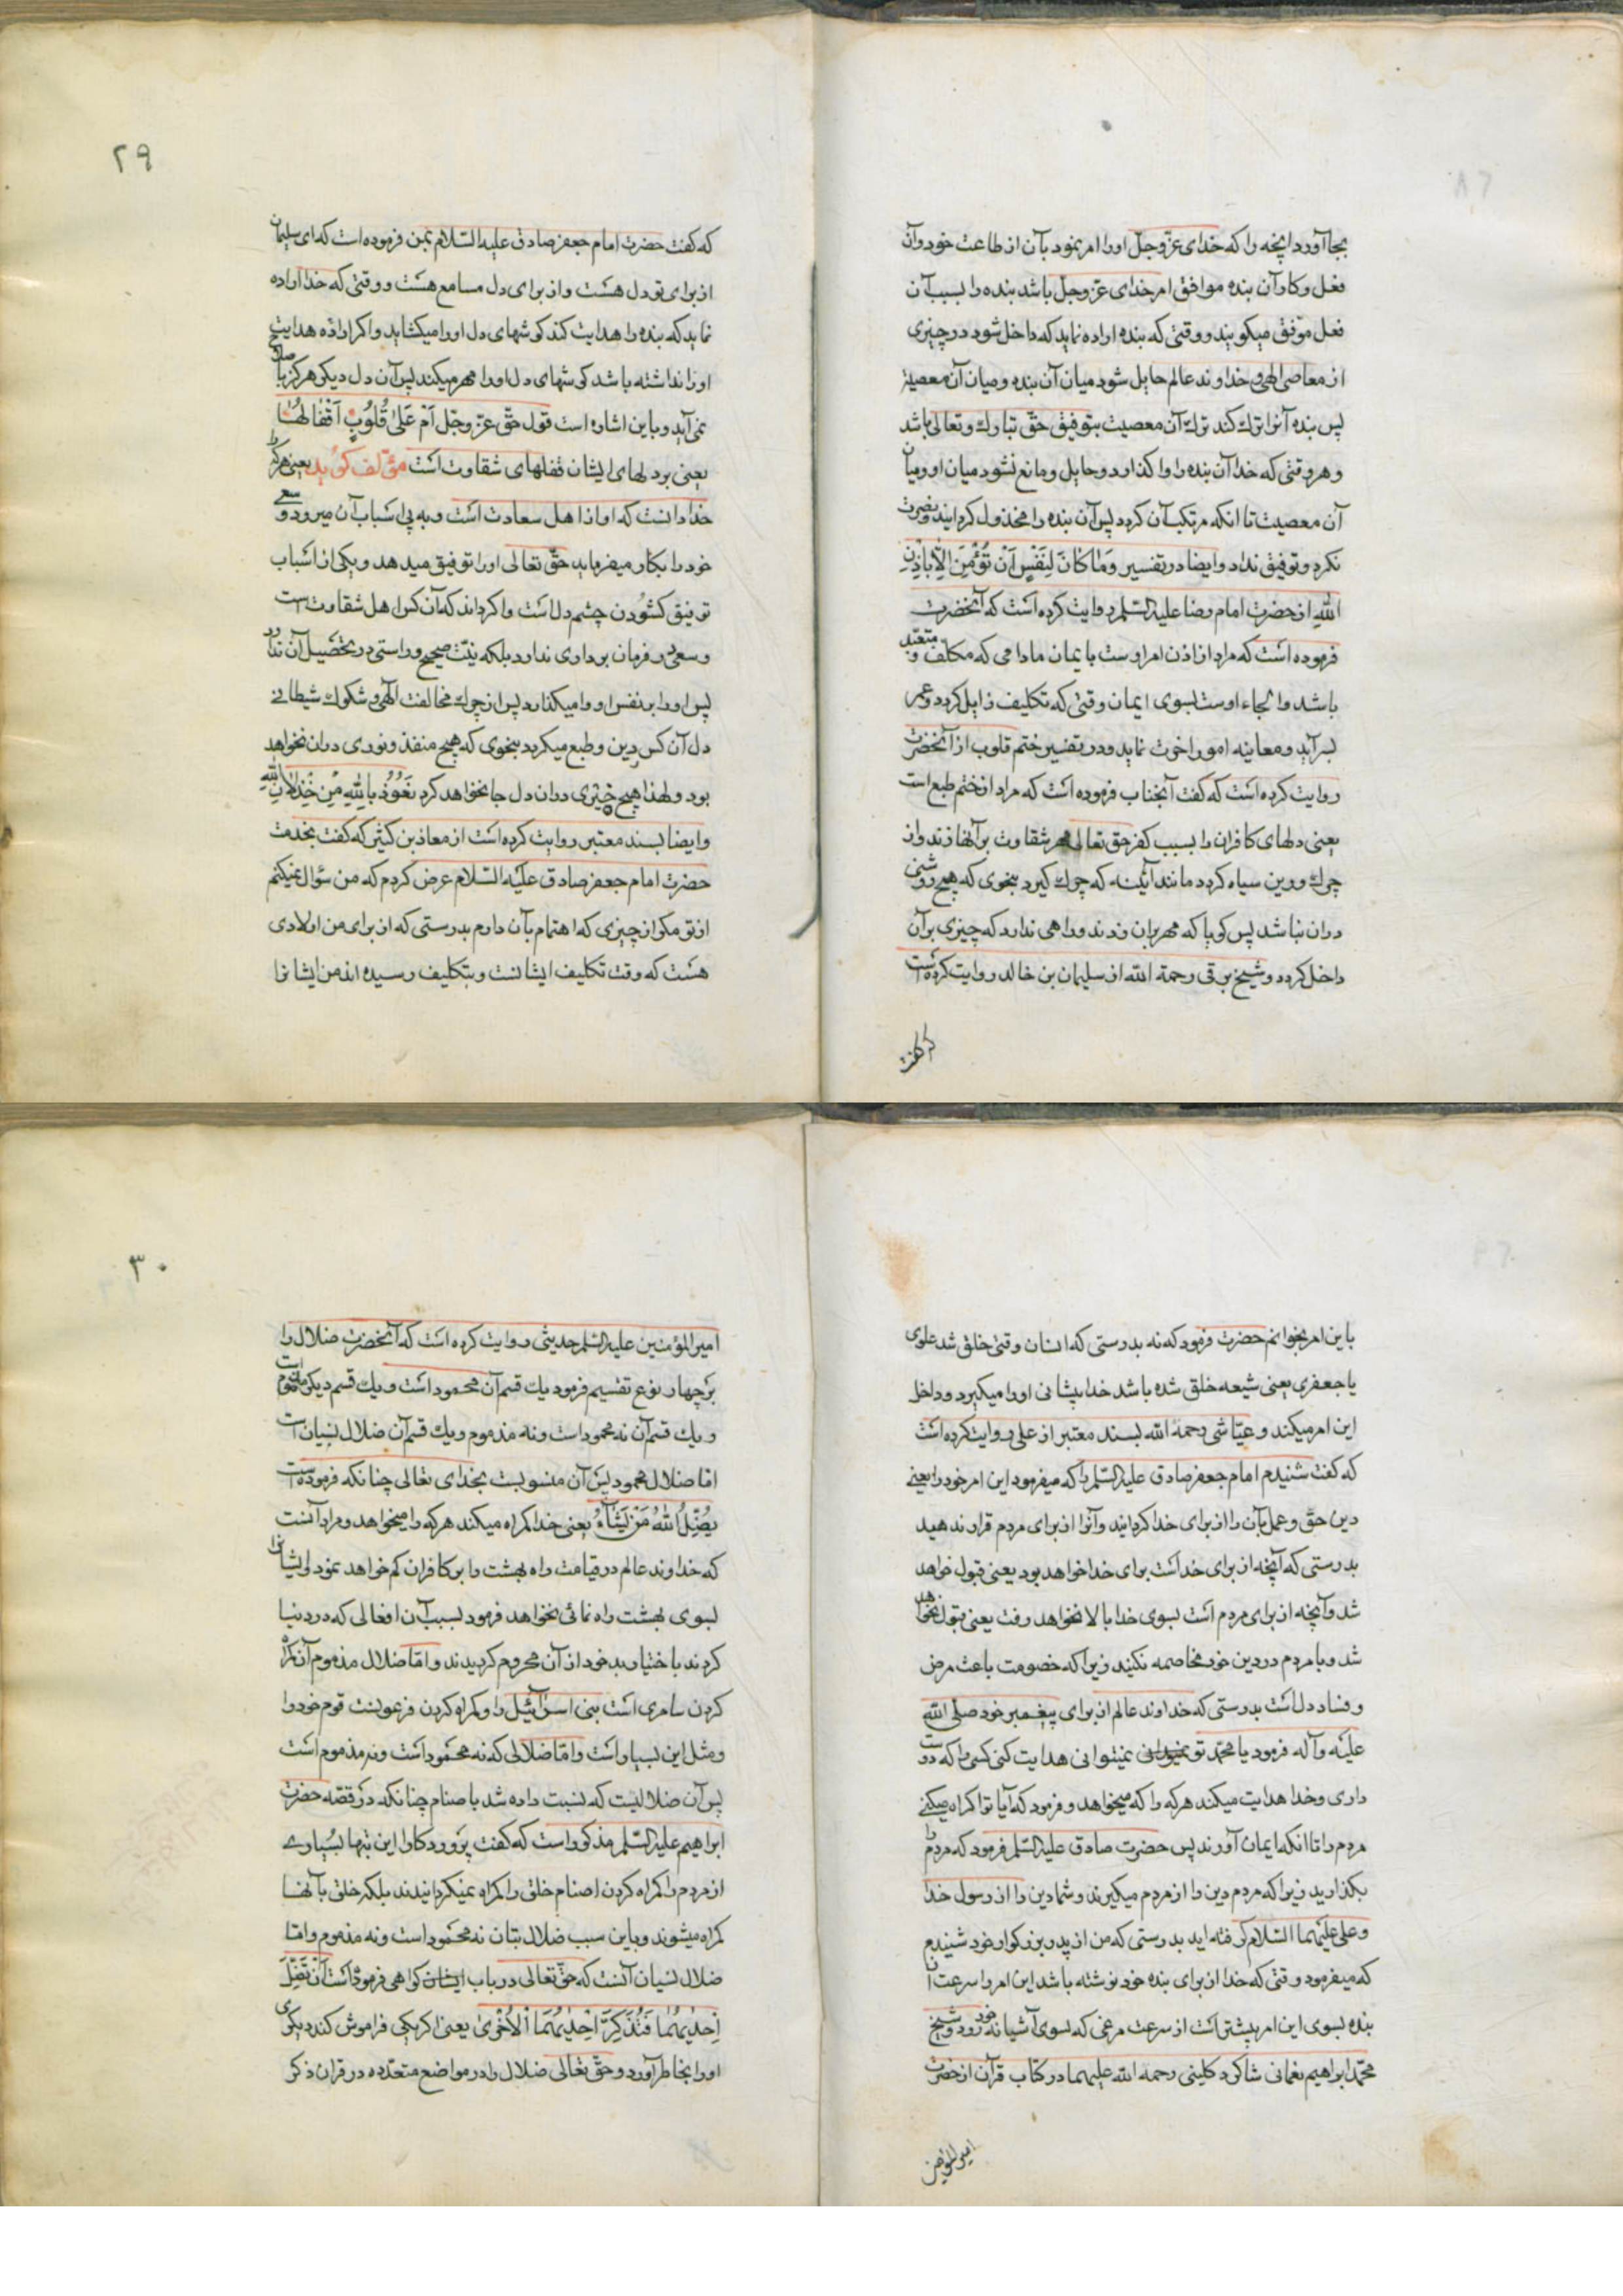 بجا آورد آنچه را که خدای عزّ و جلّ او را امر نمود بآن از طاعت خود و آن
فعل و کار آن بنده موافق امر خدای عزّ و جلّ باشد بنده را بسبب آن
فعل موّفق میکویند و وقتی که بنده اراده نماید که داخل شود در چیزی
از معاصی الهی و خداوند عالم حایل شود میان آن بنده و میان آن معصیة
پس بنده آنرا ترك کند ترك آن معصیت بتوفیق حقّ تبارك و تعالی باشد
و هر وقتی که خدا آن بنده را وا کذارد و حایل و مانع نشود میان او و میان
آن معصیت تا انکه مرتکب آن کردد پس آن بنده را مخذول کردانیده و نصرت
نکرده و توفیق نداد و ایضا در تفسیر وَمٰا کٰانَ لِنَفْسٍ اَنْ تُؤْمِنَ اِلّٰا بِاِذْنِ
اللّٰهِ از حضرت امام رضا علیه السّلم روایت کرده است که آنحضرت
فرموده است که مراد از اذن امر اوست بایمان مادامی که مکلّف و متعبّد
باشد و الجاء اوست بسوی ایمان وقتی که تکلیف زایل کردد و عمر
بسر آید و معاینه امور اخرت نماید و در تفسیر ختم قلوب از آنحضرت
روایت کرده است که کفت آنجناب فرموده است که مراد از ختم طبع است
یعنی دلهای کافران را بسبب کفر حق تعالی مهر شقاوت بر آنها زند و از
چرك و رین سیاه کردد مانند آئینه که چرك کیرد بنحوی که هیچ روشنی
دران نباشد پس کویا که مهر بران زدند و راهی ندارد که چیزی برآن
داخل کردد و شیخ برقی رحمة الله از سلیمان بن خالد روایت کرده است
که کفت
۲۹
که کفت حضرت امام جعفر صادق علیه السّلام بمن فرموده است که ای سلیمان
از برای تو دل هست و از برای دل مسامع هست و وقتی که خدا اراده
نماید که بنده را هدایت کند کوشهای دل او را میکشاید و اکر اراده هدایت
او را نداشته باشد کوشهای دل او را مهر میکند پس آن دل دیکر هرکز باصلاح
نمی آید و باین اشاره است قول حقّ عزّ و جّل اَمْ عَلیٰ قُلُوبٍ اَقْفٰالُهٰا
یعنی بر دلهای ایشان قفلهای شقاوت است مؤلّف کوید یعنی هرکرا
خدا دانست که او از اهل سعادت است و به پی اسباب آن میرود و سعی
خود را بکار میفرماید حقّ تعالی او را توفیق میدهد و یکی از اسباب
توفیق کشودن چشم دل است و اکر داند که آن کس اهل شقاوت است
و سعی در فرمان برداری ندارد بلکه نیّت صحیح و راستی در تحصیل آن ندارد
پس او را بنفس او وا میکذارد پس از چرك مخالفت الهی و شکوك شیطانی
دل آن کس رین و طبع میکیرد بنحوی که هیچ منفذ و نوری دران نخواهد
بود و لهذا هیچ چیزی دران دل جا نخواهد کرد نَعُوُذ بِاللّٰهِ مِن خِذْلٰانِ اللّٰهِ
و ایضا بسند معتبر روایت کرده است از معاذ بن کثیر که کفت بخدمت
حضرت امام جعفر صادق علیه السّلام عرض کردم که من سؤال نمیکنم
از تو مکر از چیزی که اهتمام بآن دارم بدرستی که از برای من اولادی
هست که وقت تکلیف ایشانست و بتکلیف رسیده اند من ایشانرا
باین امر بخوانم حضرت فرمود که نه بدرستی که انسان وقتی خلق شد علوی
یا جعفری یعنی شیعه خلق شده باشد خدا پیشانی او را میکیرد و داخل
این امر میکند و عیّاشی رحمه الله بسند معتبر از علی روایت کرده است
که کفت شنیدم امام جعفر صادق علیه السّلم را که میفرمود این امر خود را یعنی
دین حقّ و عمل بآن را از برای خدا کردانید و آنرا از برای مردم قرار ندهید
بدرستی که آنچه از برای خداست برای خدا خواهد بود یعنی قبول خواهد
شد و آنچه از برای مردم است بسوی خدا بالا نخواهد رفت یعنی قبول نخواهد
شد و با مردم در دین خود مخاصمه نکنید زیرا که خصومت باعث مرض
و فساد دل است بدرستی که خداوند عالم از برای پیغمبر خود صلّی الله
علیه و آله فرمود یا محمّد تو نمیتوانی هدایت کنی کسی را که دوست
داری و خدا هدایت میکند هرکه را که میخواهد و فرمود که آیا تو اکراه میکنی
مردم را تا انکه ایمان آورند پس حضرت صادق علیه السّلم فرمود که مردم را
بکذارید زیرا که مردم دین را از مردم میکیرند و شما دین را از رسول خدا
و علی علیهما السّلام کرفته اید بدرستی که من از پدر بزرکوار خود شنیدم
که میفرمود وقتی که خدا از برای بنده خود نوشته باشد این امر را سرعت آن
بنده بسوی این امر بیشتر است از سرعت مرغی که بسوی آشیانه خود رود و شیخ
محمّد ابراهیم نعمانی شاکرد کلینی رحمه الله علیهما در کتاب قرآن از حضرت
امیر المؤمنین
۳۰
امیر المؤمنین علیه السّلم حدیثی روایت کرده است که آنحضرت ضلال را
بر چهار نوع تقسیم فرمود یك قسم آن محمود است و یك قسم دیکر مذموم است
و یك قسم آن نه محمود است و نه مذموم و یك قسم آن ضلال نسیان است
امّا ضلال محمود پس آن منسوبست بخدای تعالی چنانکه فرموده است
یُضِلُّ اللّٰهُ مَنْ یَشٰآءُ یعنی خدا کمراه میکند هرکه را میخواهد و مراد آنست
که خداوند عالم در قیامت راه بهشت را بر کافران کم خواهد نمود و ایشانرا
بسوی بهشت راه نمائی نخواهد فرمود بسبب آن افعالی که در دنیا
کردند باختیار بد خود از آن محروم کردیدند و امّا ضلال مذموم آن کمراه
کردن سامری است بنی اسرآئیل را و کمراه کردن فرعونست قوم خود را
و مثل این بسیار است و امّا ضلالی که نه محمود است و نه مذموم است
پس آن ضلالیست که نسبت داده شد باصنام چنانکه در قصّه حضرت
ابراهیم علیه السّلم مذکور است که کفت پروردکارا این بتها بسیاری
از مردم را کمراه کردن اصنام خلق را کمراه نمیکردانیدند بلکه خلق بآنها
کمراه میشوند و باین سبب ضلال بتان نه محمود است و نه مذموم و امّا
ضلال نسیان آنست که حقّ تعالی در باب کواهی فرموده است اَنْ تَضِلَّ
اِحْدٰیهُمٰا فَتُذَکِّرَ اِحْدٰیهُمَا الْاُخْریٰ یعنی اکر یکی فراموش کند دیکری
او را بخاطر آورد و حقّ تعالی ضلال را در مواضع متعدّده در قران ذکر